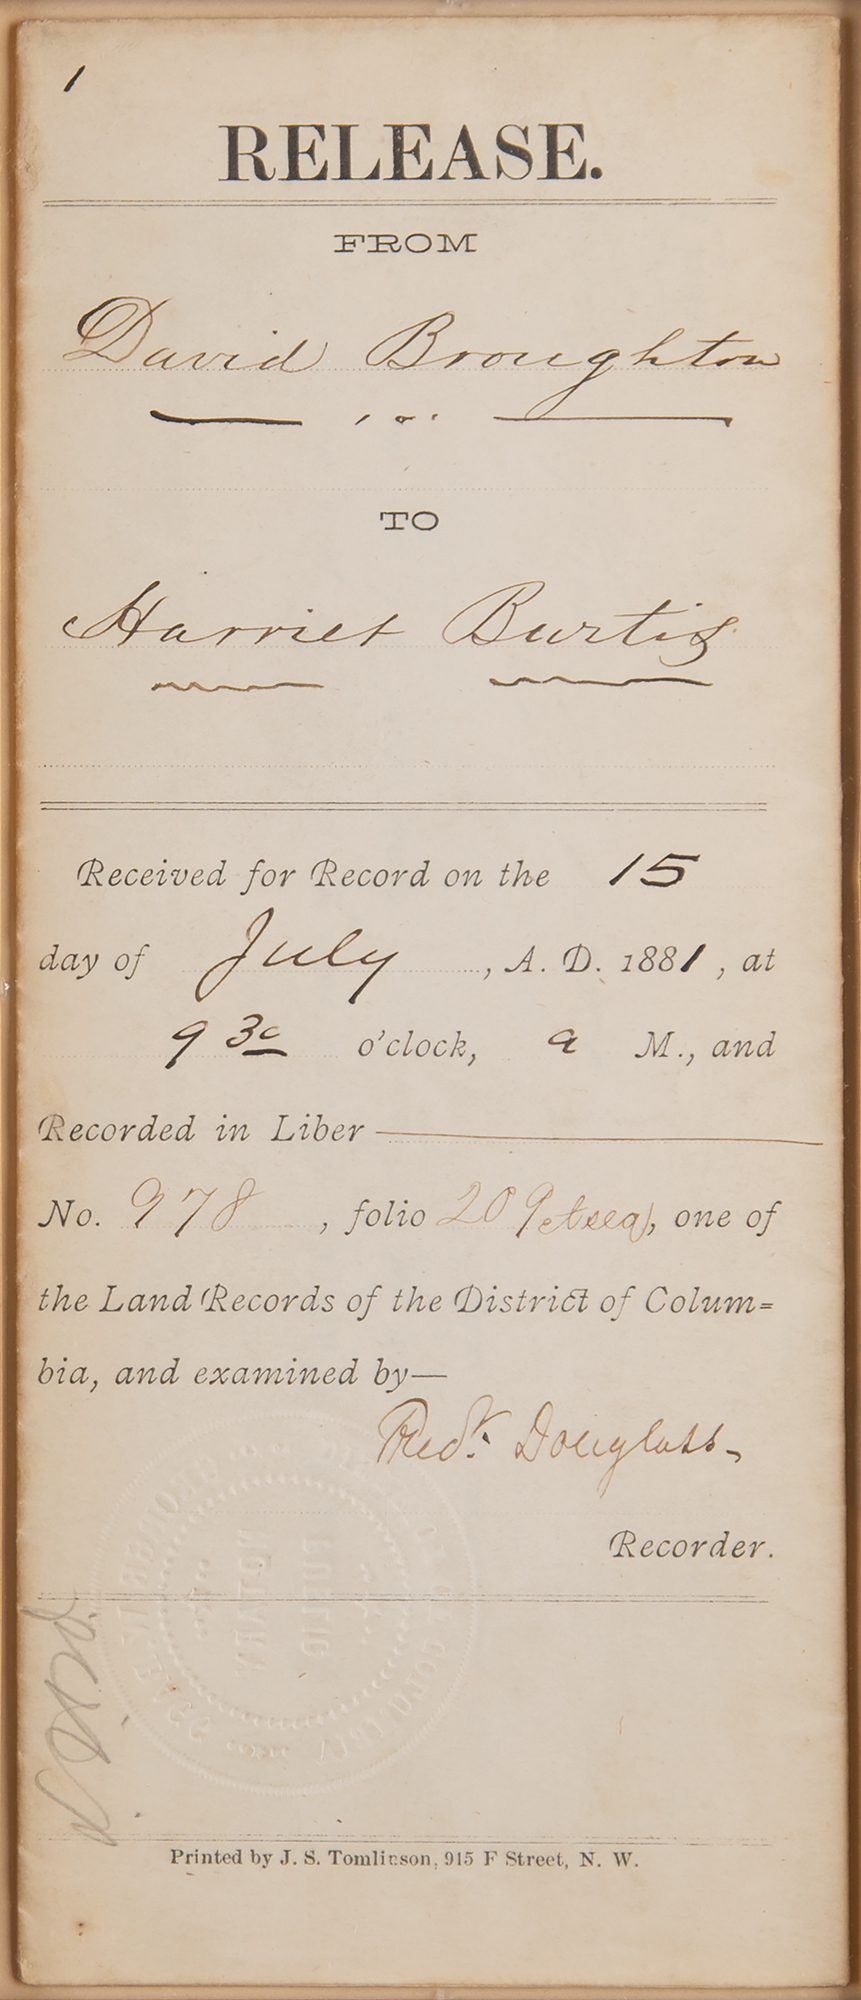 1
RELEASE.
FROM
David Broughton
TO
Harriet Burtis
Received for Record on the 15
day of July, A. D. 1881, at
9 30 o'clock, a M., and
Recorded in Liber
No. 978, folio 209 et seq, one of
the Land Records of the District of Colum=
bia, and examined by—
Fredk. Douglass
Recorder.
NOTARY
PUBLIC
Printed by J. S. Tomlinson, 915 F Street, N. W.